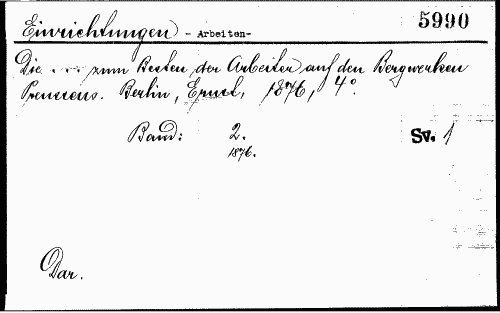 5990
Einrichtungen - Arbeiten-
Die ... zum Besten der Arbeiter auf den Bergwerken
Preussens. Berlin, Ernst, 1876, 4°.
Band: 2. Sv. 1
1876.
Dar.